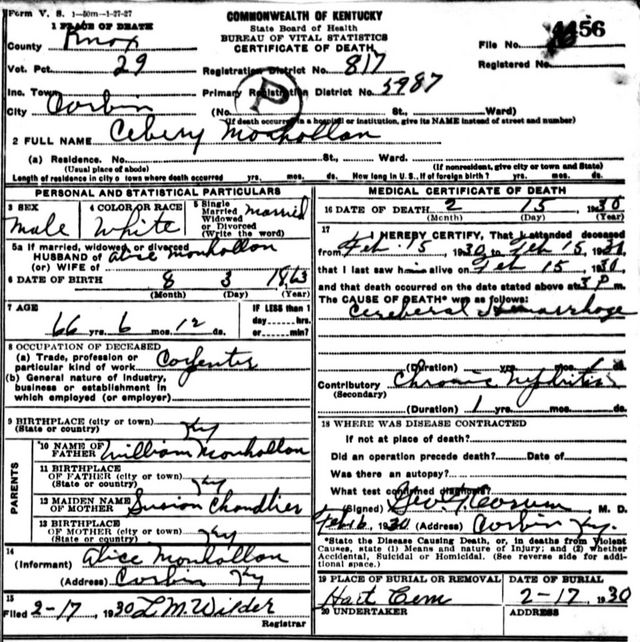 Form V. S. 1-50m-1-27-27
COMMONWEALTH OF KENTUCKY
State Board of Health
BUREAU OF VITAL STATISTICS
CERTIFICATE OF DEATH
1 PLACE OF DEATH
County Knox
File No. 4456
Vot. Pct. 29
Registration District No. 817
Registered No.
Inc. Town
Primary Registration District No. 5987
City Corbin
(No. St., Ward)
(If death occurred in a hospital or institution, give its NAME instead of street and number)
2 FULL NAME Cebery Monhollan
(a) Residence. No. St., Ward.
(Usual place of abode) (If nonresident, give city or town and State)
Length of residence in city or town where death occurred yrs. mos. ds. How long in U. S., if of foreign birth? yrs. mos. ds.
PERSONAL AND STATISTICAL PARTICULARS
3 SEX Male
4 COLOR OR RACE White
5 Single Married Widowed or Divorced (Write the word) Married
5a If married, widowed or divorced
HUSBAND OF Alice Monhollon
(or) WIFE of
6 DATE OF BIRTH 8 3 1863
(Month) (Day) (Year)
7 AGE 66 yrs. 6 mos. 12 ds.
IF LESS than 1 day hrs. or min?
8 OCCUPATION OF DECEASED
(a) Trade, profession or particular kind of work Carpenter
(b) General nature of industry, business or establishment in which employed (or employer)
9 BIRTHPLACE (city or town)
(State or country) Ky
PARENTS
10 NAME OF FATHER William Monhollon
11 BIRTHPLACE OF FATHER (city or town)
(State or country) Ky
12 MAIDEN NAME OF MOTHER Susion Chandlier
13 BIRTHPLACE OF MOTHER (city or town)
(State or country) Ky
14 (Informant) Alice Monhollon
(Address) Corbin Ky
15 Filed 2-17, 1930 L M Wilder
Registrar
MEDICAL CERTIFICATE OF DEATH
16 DATE OF DEATH 2 15 1930
(Month) (Day) (Year)
17 I HEREBY CERTIFY, That I attended deceased
from Feb. 15, 1930 to Feb 15, 1930,
that I last saw him alive on Feb 15, 1930,
and that death occurred on the date stated above at 3 P m.
The CAUSE OF DEATH* was as follows:
Cereberal Hemarrhage
(Duration) yrs. mos. ds.
Contributory Chronic Nephritis
(Secondary)
(Duration) 1 yrs. mos. ds.
18 WHERE WAS DISEASE CONTRACTED
If not at place of death?
Did an operation precede death? Date of
Was there an autopsy?
What test confirmed diagnosis?
(Signed) Geo. T. Corum M. D.
Feb 16, 1930 (Address) Corbin Ky.
*State the Disease Causing Death, or, in deaths from Violent
Causes, state (1) Means and nature of Injury; and (2) whether
Accidental, Suicidal or Homicidal. (See reverse side for addi-
tional space.)
19 PLACE OF BURIAL OR REMOVAL Hart Cem
DATE OF BURIAL 2-17 1930
20 UNDERTAKER
ADDRESS